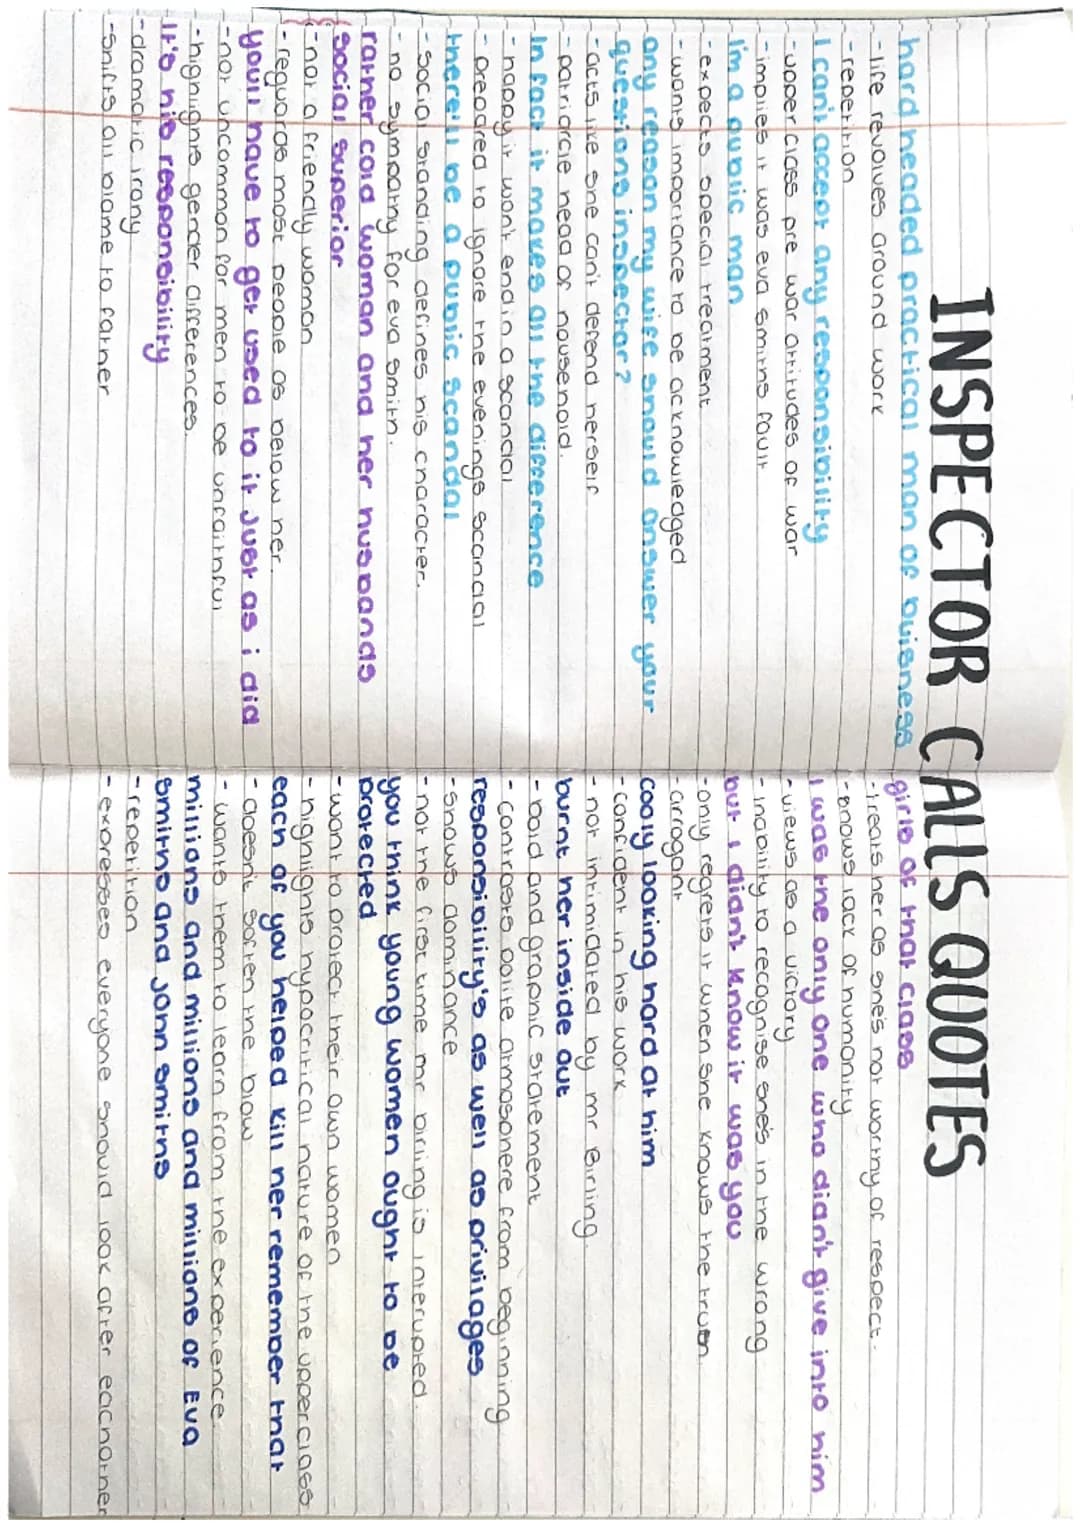 INSPECTOR CALLS QUOTES
hard headed practical man of buisness
- life revolves around work
- repetition
I can't accept any responsibility
- upper class pre war attitudes of war
- implies it was eva smiths fault
I'm a public man
- expects special treatment
- wants importance to be acknowledged
any reason my wife should answer your
questions inspector?
- acts like she can't defend herself
- patriarcle head of household.
In fact it makes all the difference
- happy it wont end in a scandal
- prepared to ignore the evenings scandal
there'll be a public scandal
- social standing defines his character.
- no sympathy for eva smith.
rather cold woman and her husbands
social superior
- not a friendly woman
- reguards most people as below her.
youll have to get used to it just as i did
- not uncommon for men to be unfaithful
- highlights gender differences.
It's his responsibility
- dramatic irony
- shifts all blame to father
girls of that class
- treats her as she's not worthy of respect.
- shows lack of humanity
I was the only one who didn't give into him
- views as a victory
- inability to recognise she's in the wrong
but i didn't know it was you
- only regrets it when she knows the truth
- arrogant
cooly looking hard at him
- confident in his work
- not intimidated by mr Birling.
burnt her inside out
- bold and graphic statement
- contrasts polite atmosphere from beginning
responsibility's as well as privilages
- shows dominance
- not the first time mr birling is interupted.
you think young women ought to be
protected
- want to protect their own women
- highlights hypocritical nature of the upperclass
each of you helped kill her remember that
- doesn't soften the blow
- wants them to learn from the experience
millions and millions and millions of Eva
smiths and John smiths
- repetition
- expresses everyone should look after eachother